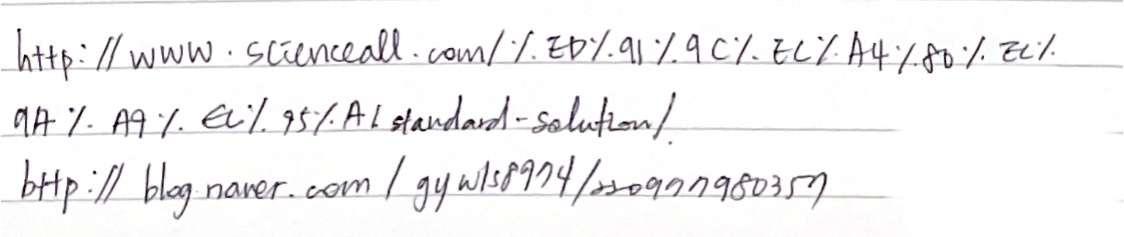 http://www.scienceall.com/%ED%91%9C%EC%A4%80%EC%
9A%A9%EC%95%A1standard-solution/
http://blog.naver.com/gywls8974/220977980357